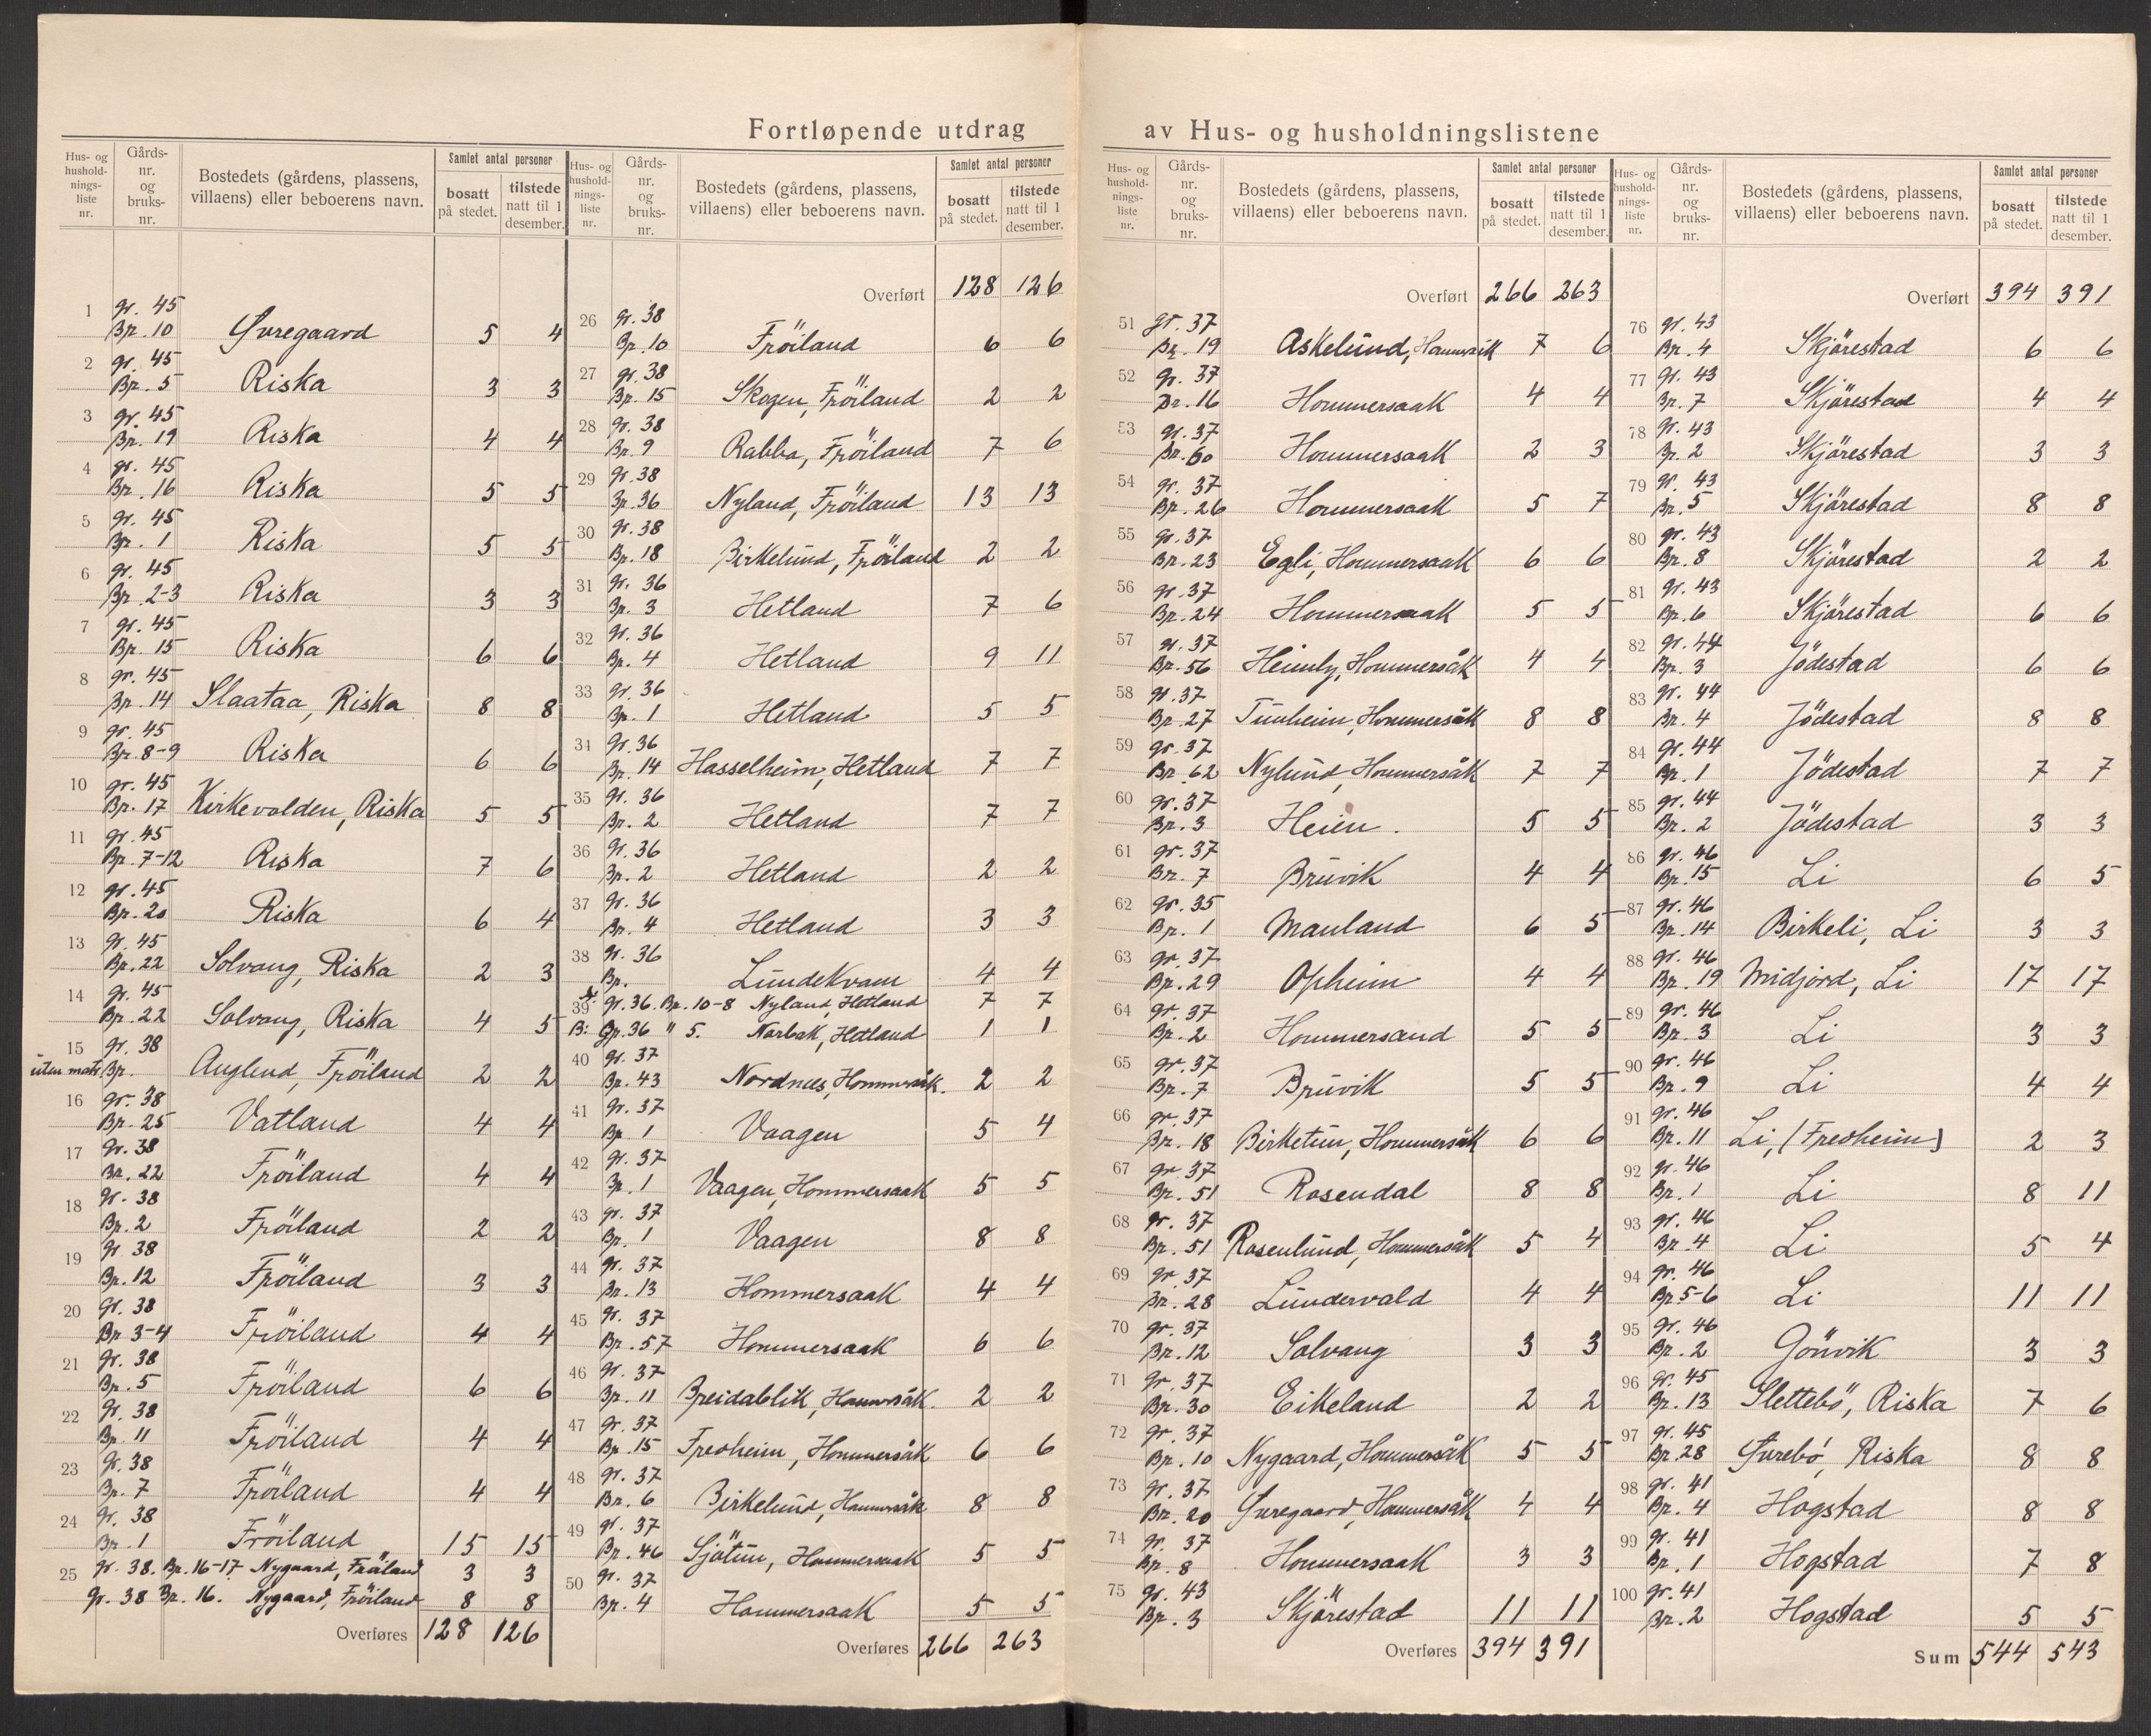 Fortløpende utdrag av Hus- og husholdningslistene
Hus- og husholdnings-liste nr. Gårds-nr. og bruks-nr. Bostedets (gårdens, plassens, villaens) eller beboerens navn. Samlet antal personer bosatt på stedet. tilstede natt til 1 desember.
1 gr. 45 Br. 10 Øvregaard 5 4
2 gr. 45 Br. 5 Riska 3 3
3 gr. 45 Br. 19 Riska 4 4
4 gr. 45 Br. 16 Riska 5 5
5 gr. 45 Br. 1 Riska 5 5
6 gr. 45 Br. 2-3 Riska 3 3
7 gr. 45 Br. 15 Riska 6 6
8 gr. 45 Br. 14 Slaataa, Riska 8 8
9 gr. 45 Br. 8-9 Riska 6 6
10 gr. 45 Br. 17 Kirkevolden, Riska 5 5
11 gr. 45 Br. 7-12 Riska 7 6
12 gr. 45 Br. 20 Riska 6 4
13 gr. 45 Br. 22 Solvang, Riska 2 3
14 gr. 45 Br. 22 Solvang, Riska 4 5
15 gr. 38 uten matr. Br. Auglend, Fröiland 2 2
16 gr. 38 Br. 25 Vatland 4 4
17 gr. 38 Br. 22 Fröiland 4 4
18 gr. 38 Br. 2 Fröiland 2 2
19 gr. 38 Br. 12 Fröiland 3 3
20 gr. 38 Br. 3-4 Fröiland 4 4
21 gr. 38 Br. 5 Fröiland 6 6
22 gr. 38 Br. 11 Fröiland 4 4
23 gr. 38 Br. 7 Fröiland 4 4
24 gr. 38 Br. 1 Fröiland 15 15
25 gr. 38. Br. 16-17 Nygaard, Fröiland 3 3
gr. 38 Br. 16. Nygaard, Fröiland 8 8
Overføres 128 126
Hus- og husholdnings-liste nr. Gårds-nr. og bruks-nr. Bostedets (gårdens, plassens, villaens) eller beboerens navn. Samlet antal personer bosatt på stedet. tilstede natt til 1 desember.
Overført 128 126
26 gr. 38 Br. 10 Fröiland 6 6
27 gr. 38 Br. 15 Skogen, Fröiland 2 2
28 gr. 38 Br. 9 Rabba, Fröiland 7 6
29 gr. 38 Br. 36 Nyland, Fröiland 13 13
30 gr. 38 Br. 18 Birkelund, Fröiland 2 2
31 gr. 36 Br. 3 Hetland 7 6
32 gr. 36 Br. 4 Hetland 9 11
33 gr. 36 Br. 1 Hetland 5 5
34 gr. 36 Br. 14 Hasselheim, Hetland 7 7
35 gr. 36 Br. 2 Hetland 7 7
36 gr. 36 Br. 2 Hetland 2 2
37 gr. 36 Br. 4 Hetland 3 3
38 gr. 36 Br. Lundekvam 4 4
39 gr. 36. Br. 10-8 Nyland, Hetland 7 7
B: Gr. 36 " 5. Norbak, Hetland 1 1
40 gr. 37 Br. 43 Nordnes, Hommersåk. 2 2
41 gr. 37 Br. 1 Vaagen 5 4
42 gr. 37 Br. 1 Vaagen, Hommersaak 5 5
43 gr. 37 Br. 1 Vaagen 8 8
44 gr. 37 Br. 13 Hommersaak 4 4
45 gr. 37 Br. 57 Hommersaak 6 6
46 gr. 37 Br. 11 Breidablik, Hommersåk. 2 2
47 gr. 37 Br. 15 Fredheim, Hommersåk 6 6
48 gr. 37 Br. 6 Birkelund, Hommersåk 8 8
49 gr. 37 Br. 46 Sjötun, Hommersaak 5 5
50 gr. 37 Br. 4 Hommersaak 5 5
Overføres 266 263
Hus- og husholdnings-liste nr. Gårds-nr. og bruks-nr. Bostedets (gårdens, plassens, villaens) eller beboerens navn. Samlet antal personer bosatt på stedet. tilstede natt til 1 desember.
Overført 266 263
51 gr. 37 Br. 19 Askelund, Hommersåk 7 6
52 gr. 37 Br. 16 Hommersaak 4 4
53 gr. 37 Br. 60 Hommersaak 2 3
54 gr. 37 Br. 26 Hommersaak 5 7
55 gr. 37 Br. 23 Egli, Hommersaak 6 6
56 gr. 37 Br. 24 Hommersaak 5 5
57 gr. 37 Br. 56 Heimly, Hommersåk 4 4
58 gr. 37 Br. 27 Tunheim, Hommersåk 8 8
59 gr. 37 Br. 62 Nylund, Hommersåk 7 7
60 gr. 37 Br. 3 Heien. 5 5
61 gr. 37 Br. 7 Bruvik 4 4
62 gr. 35 Br. 1 Mauland 6 5
63 gr. 37 Br. 29 Opheim 4 4
64 gr. 37 Br. 2 Hommersand 5 5
65 gr. 37 Br. 7 Bruvik 5 5
66 gr. 37 Br. 18 Birketun, Hommersåk 6 6
67 gr. 37 Br. 51 Rosendal 8 8
68 gr. 37 Br. 51 Rosenlund, Hommersåk 5 4
69 gr. 37 Br. 28 Lundervold 4 4
70 gr. 37 Br. 12 Solvang 3 3
71 gr. 37 Br. 30 Eikeland 2 2
72 gr. 37 Br. 10 Nygaard, Hommersåk 5 5
73 gr. 37 Br. 20 Øvregaard, Hommersåk 4 4
74 gr. 37 Br. 8 Hommersaak 3 3
75 gr. 43 Br. 3 Skjörestad 11 11
Overføres 394 391
Hus- og husholdnings-liste nr. Gårds-nr. og bruks-nr. Bostedets (gårdens, plassens, villaens) eller beboerens navn. Samlet antal personer bosatt på stedet. tilstede natt til 1 desember.
Overført 394 391
76 gr. 43 Br. 4 Skjörestad 6 6
77 gr. 43 Br. 7 Skjörestad 4 4
78 gr. 43 Br. 2 Skjörestad 3 3
79 gr. 43 Br. 5 Skjörestad 8 8
80 gr. 43 Br. 8 Skjörestad 2 2
81 gr. 43 Br. 6 Skjörestad 6 6
82 gr. 44 Br. 3 Jödestad 6 6
83 gr. 44 Br. 4 Jödestad 8 8
84 gr. 44 Br. 1 Jödestad 7 7
85 gr. 44 Br. 2 Jödestad 3 3
86 gr. 46 Br. 15 Li 6 5
87 gr. 46 Br. 14 Birkeli, Li 3 3
88 gr. 46 Br. 19 Midjord, Li 17 17
89 gr. 46 Br. 3 Li 3 3
90 gr. 46 Br. 9 Li 4 4
91 gr. 46 Br. 11 Li, (Fredheim) 2 3
92 gr. 46 Br. 1 Li 8 11
93 gr. 46 Br. 4 Li 5 4
94 gr. 46 Br. 5-6 Li 11 11
95 gr. 46 Br. 2 Gönvik 3 3
96 gr. 45 Br. 13 Slettebö, Riska 7 6
97 gr. 45 Br. 28 Øvrebö, Riska 8 8
98 gr. 41 Br. 4 Hogstad 8 8
99 gr. 41 Br. 1 Hogstad 7 8
100 gr. 41 Br. 2 Hogstad 5 5
Sum 544 543